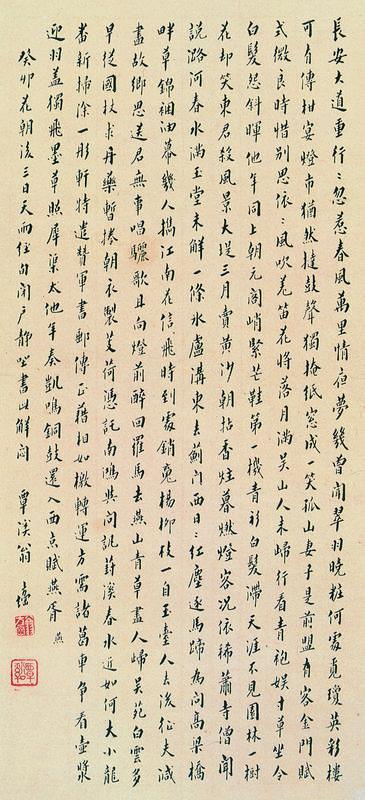 長安大道重行行忽惹春風萬里情夜夢幾曾聞翠羽曉粧何處覓瓊英彩樓
可有傳柑宴燈市猶然撾鼓聲獨掩紙窗成一笑孤山妻子是前盟有客金門賦
式微良時惜別思依依風吹羌笛花將落月滿吳山人未歸行看青袍娛寸草坐令
白髮怨斜暉他年同上朝元閣峭緊芒鞋第一機青衫白髮滯天涯不見園林一樹
花却笑東君殺風景大堤三月賣黃沙朝拈香炷暮燃燈客況依稀蕭寺僧聞
說潞河春水滿玉堂未解一條冰盧溝東去薊門西日日紅塵逐馬蹄為問高梁橋
畔草錦裀油幕幾人攜江南花信飛時到處銷魂楊柳枝一自玉臺人去後征夫減
盡故鄉思送君無事唱驪歌且向燈前醉叵羅馬去燕山青草盡人歸吳苑白雲多
早從國杖求丹藥暫捲朝衣製芰荷憑託南鴻與問訊苕溪春水近如何大小龍
番新掃除一彤軒特遣督軍書郵傳正藉相如檄轉運方需諸葛車爭看壺漿
迎羽蓋獨飛墨草照犀渠太他年奏凱鳴銅鼓還入西京賦燕胥
燕
癸卯花朝後三日天雨住自閉戶靜坐書此解悶
覃溪翁